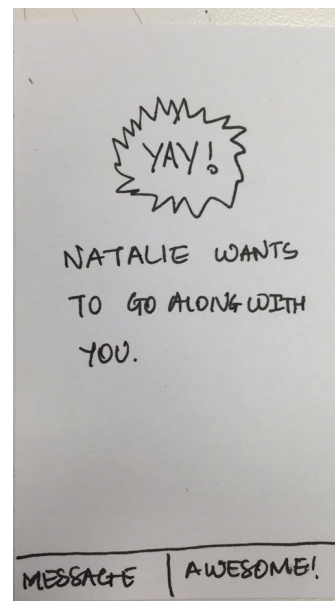 YAY!
NATALIE WANTS
TO GO ALONG WITH
YOU.
MESSAGE | AWESOME!